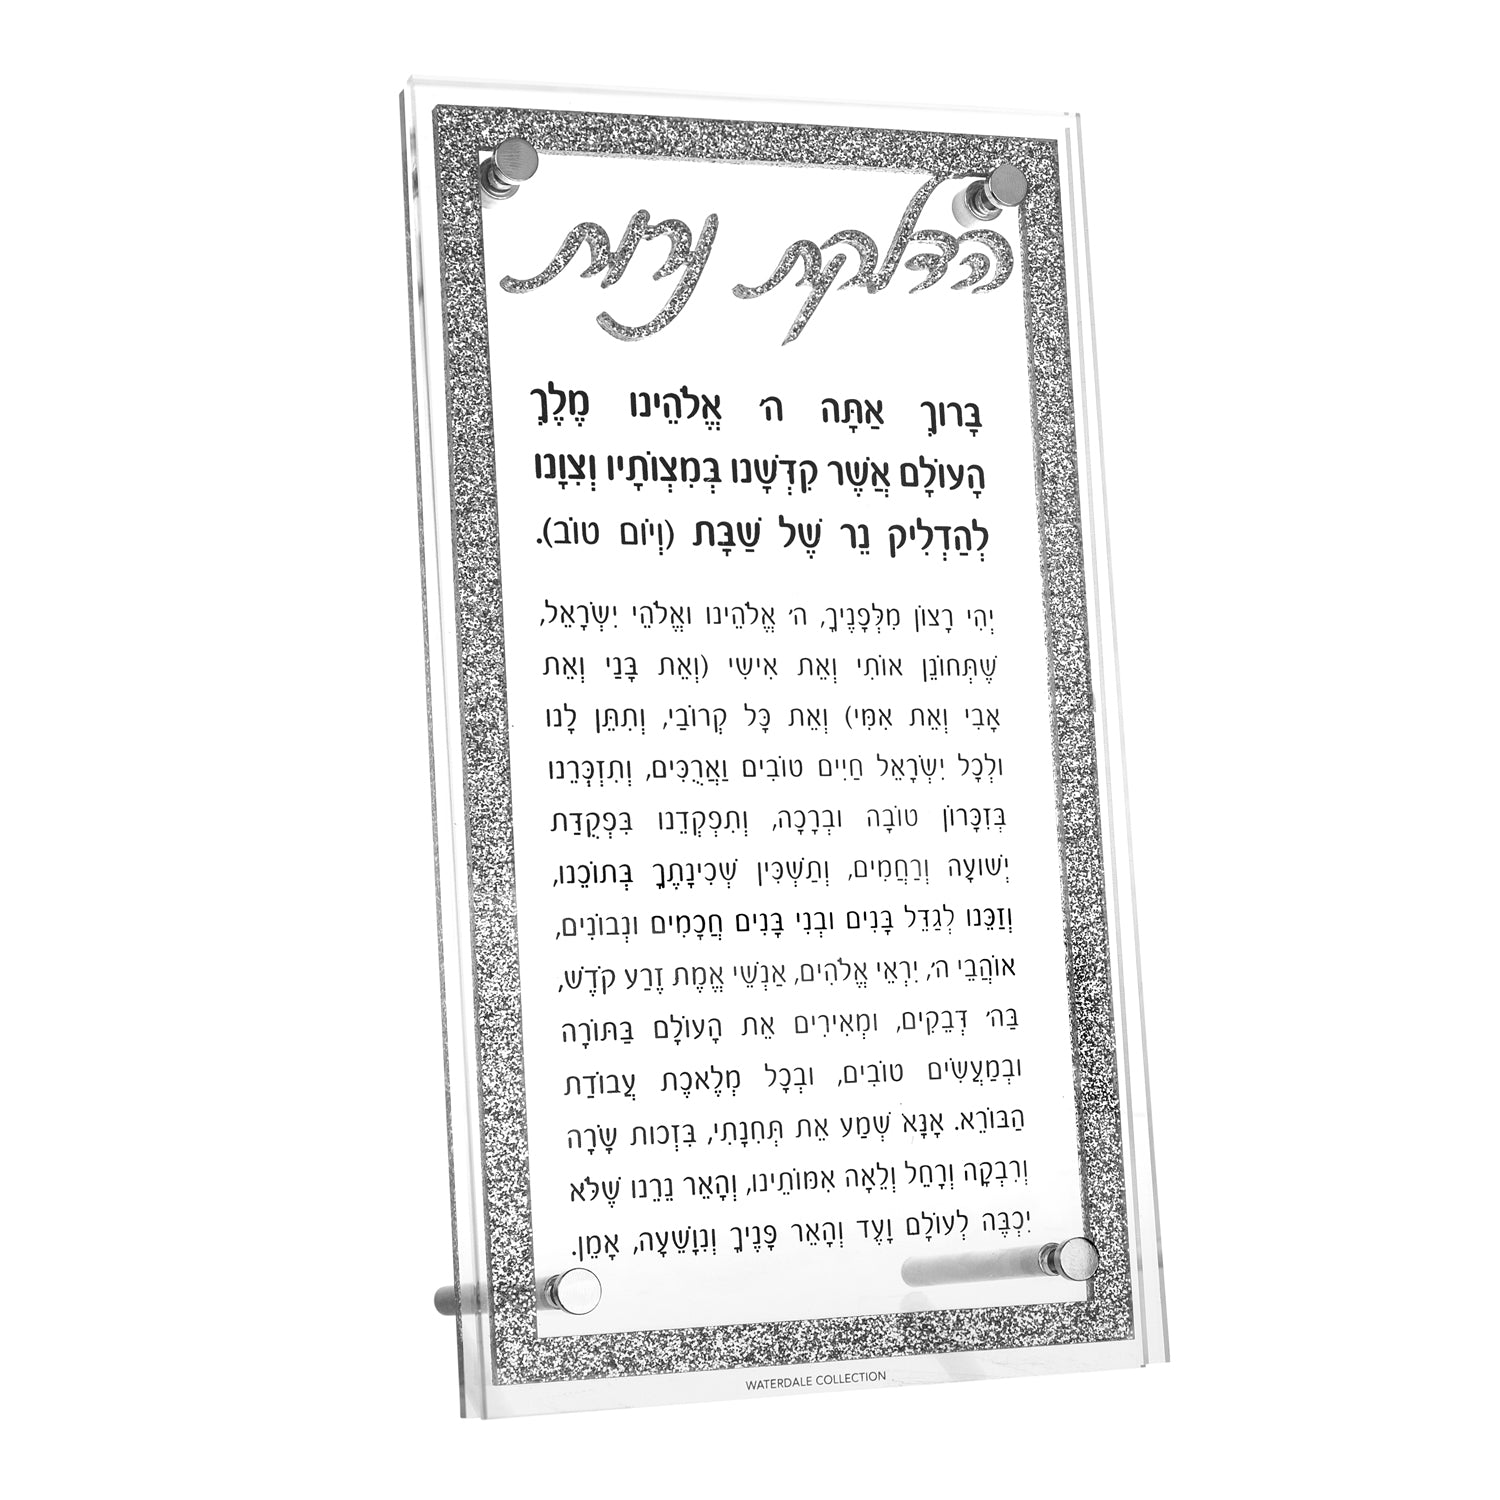 הדלקת נרות
בָּרוּךְ אַתָּה ה׳ אֱלֹהֵינוּ מֶלֶךְ
הָעוֹלָם אֲשֶׁר קִדְּשָׁנוּ בְּמִצְוֹתָיו וְצִוָּנוּ
לְהַדְלִיק נֵר שֶׁל שַׁבָּת (וְיוֹם טוֹב).
יְהִי רָצוֹן מִלְּפָנֶיךָ, ה׳ אֱלֹהֵינוּ וֵאלֹהֵי יִשְׂרָאֵל,
שֶׁתְּחוֹנֵן אוֹתִי וְאֶת אִישִׁי (וְאֶת בָּנַי וְאֶת
אָבִי וְאֶת אִמִּי) וְאֶת כָּל קְרוֹבַי, וְתִתֵּן לָנוּ
וּלְכָל יִשְׂרָאֵל חַיִּים טוֹבִים וַאֲרֻכִּים, וְתִזְכְּרֵנוּ
בְּזִכָּרוֹן טוֹבָה וּבְרָכָה, וְתִפְקְדֵנוּ בִּפְקֻדַּת
יְשׁוּעָה וְרַחֲמִים, וְתַשְׁכִּין שְׁכִינָתֶךָ בְּתוֹכֵנוּ,
וְזַכֵּנוּ לְגַדֵּל בָּנִים וּבְנֵי בָּנִים חֲכָמִים וּנְבוֹנִים,
אוֹהֲבֵי ה׳, יִרְאֵי אֱלֹהִים, אַנְשֵׁי אֱמֶת זֶרַע קֹדֶשׁ,
בַּה׳ דְּבֵקִים, וּמְאִירִים אֶת הָעוֹלָם בַּתּוֹרָה
וּבְמַעֲשִׂים טוֹבִים, וּבְכָל מְלֶאכֶת עֲבוֹדַת
הַבּוֹרֵא. אָנָּא שְׁמַע אֶת תְּחִנָּתִי, בִּזְכוּת שָׂרָה
וְרִבְקָה וְרָחֵל וְלֵאָה אִמּוֹתֵינוּ, וְהָאֵר נֵרֵנוּ שֶׁלֹּא
יִכְבֶּה לְעוֹלָם וָעֶד וְהָאֵר פָּנֶיךָ וְנִוָּשֵׁעָה, אָמֵן.
WATERDALE COLLECTION